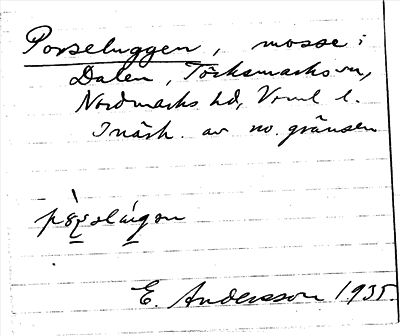 Porseluggen, mosse i
Dalen, Töcksmarks sn,
Nordmarks hd, Vrml l.
I närh. av no. gränsen
E. Andersson 1935.